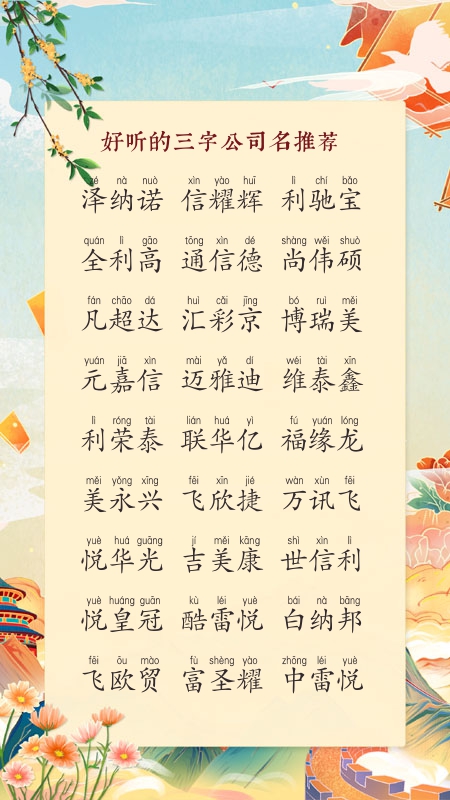 好听的三字公司名推荐
zé nà nuò xìn yào huī lì chí bǎo
泽纳诺 信耀辉 利驰宝
quán lì gāo tōng xìn dé shàng wěi shuò
全利高 通信德 尚伟硕
fán chāo dá huì cǎi jīng bó ruì měi
凡超达 汇彩京 博瑞美
yuán jiā xìn mài yǎ dí wéi tài xīn
元嘉信 迈雅迪 维泰鑫
lì róng tài lián huá yì fú yuán lóng
利荣泰 联华亿 福缘龙
měi yǒng xīng fēi xīn jié wàn xùn fēi
美永兴 飞欣捷 万讯飞
yuè huá guāng jí měi kāng shì xìn lì
悦华光 吉美康 世信利
yuè huáng guān kù léi yuè bái nà bāng
悦皇冠 酷雷悦 白纳邦
fēi ōu mào fù shèng yào zhōng léi yuè
飞欧贸 富圣耀 中雷悦